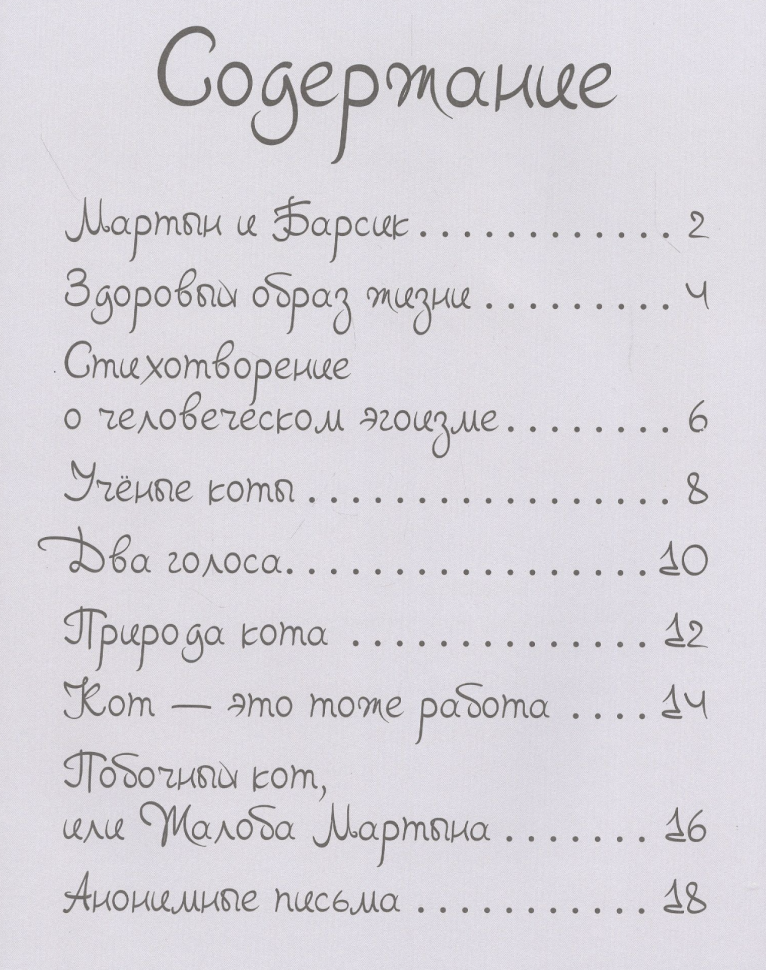 Содержание
Мартын и Барсик . . . . . . . . . . . . 2
Здоровый образ жизни . . . . . . . . . 4
Стихотворение
о человеческом эгоизме . . . . . . . . 6
Учёные коты . . . . . . . . . . . . . . . . . 8
Два голоса . . . . . . . . . . . . . . . . . 10
Природа кота . . . . . . . . . . . . . . 12
Кот — это тоже работа . . . . 14
Побочный кот,
или Жалоба Мартына . . . . . . . 16
Анонимные письма . . . . . . . . . . . 18